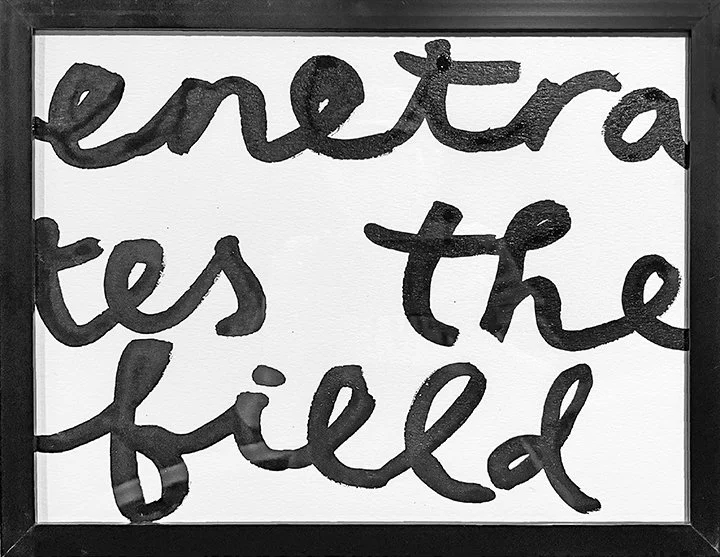 enetra
tes the
field